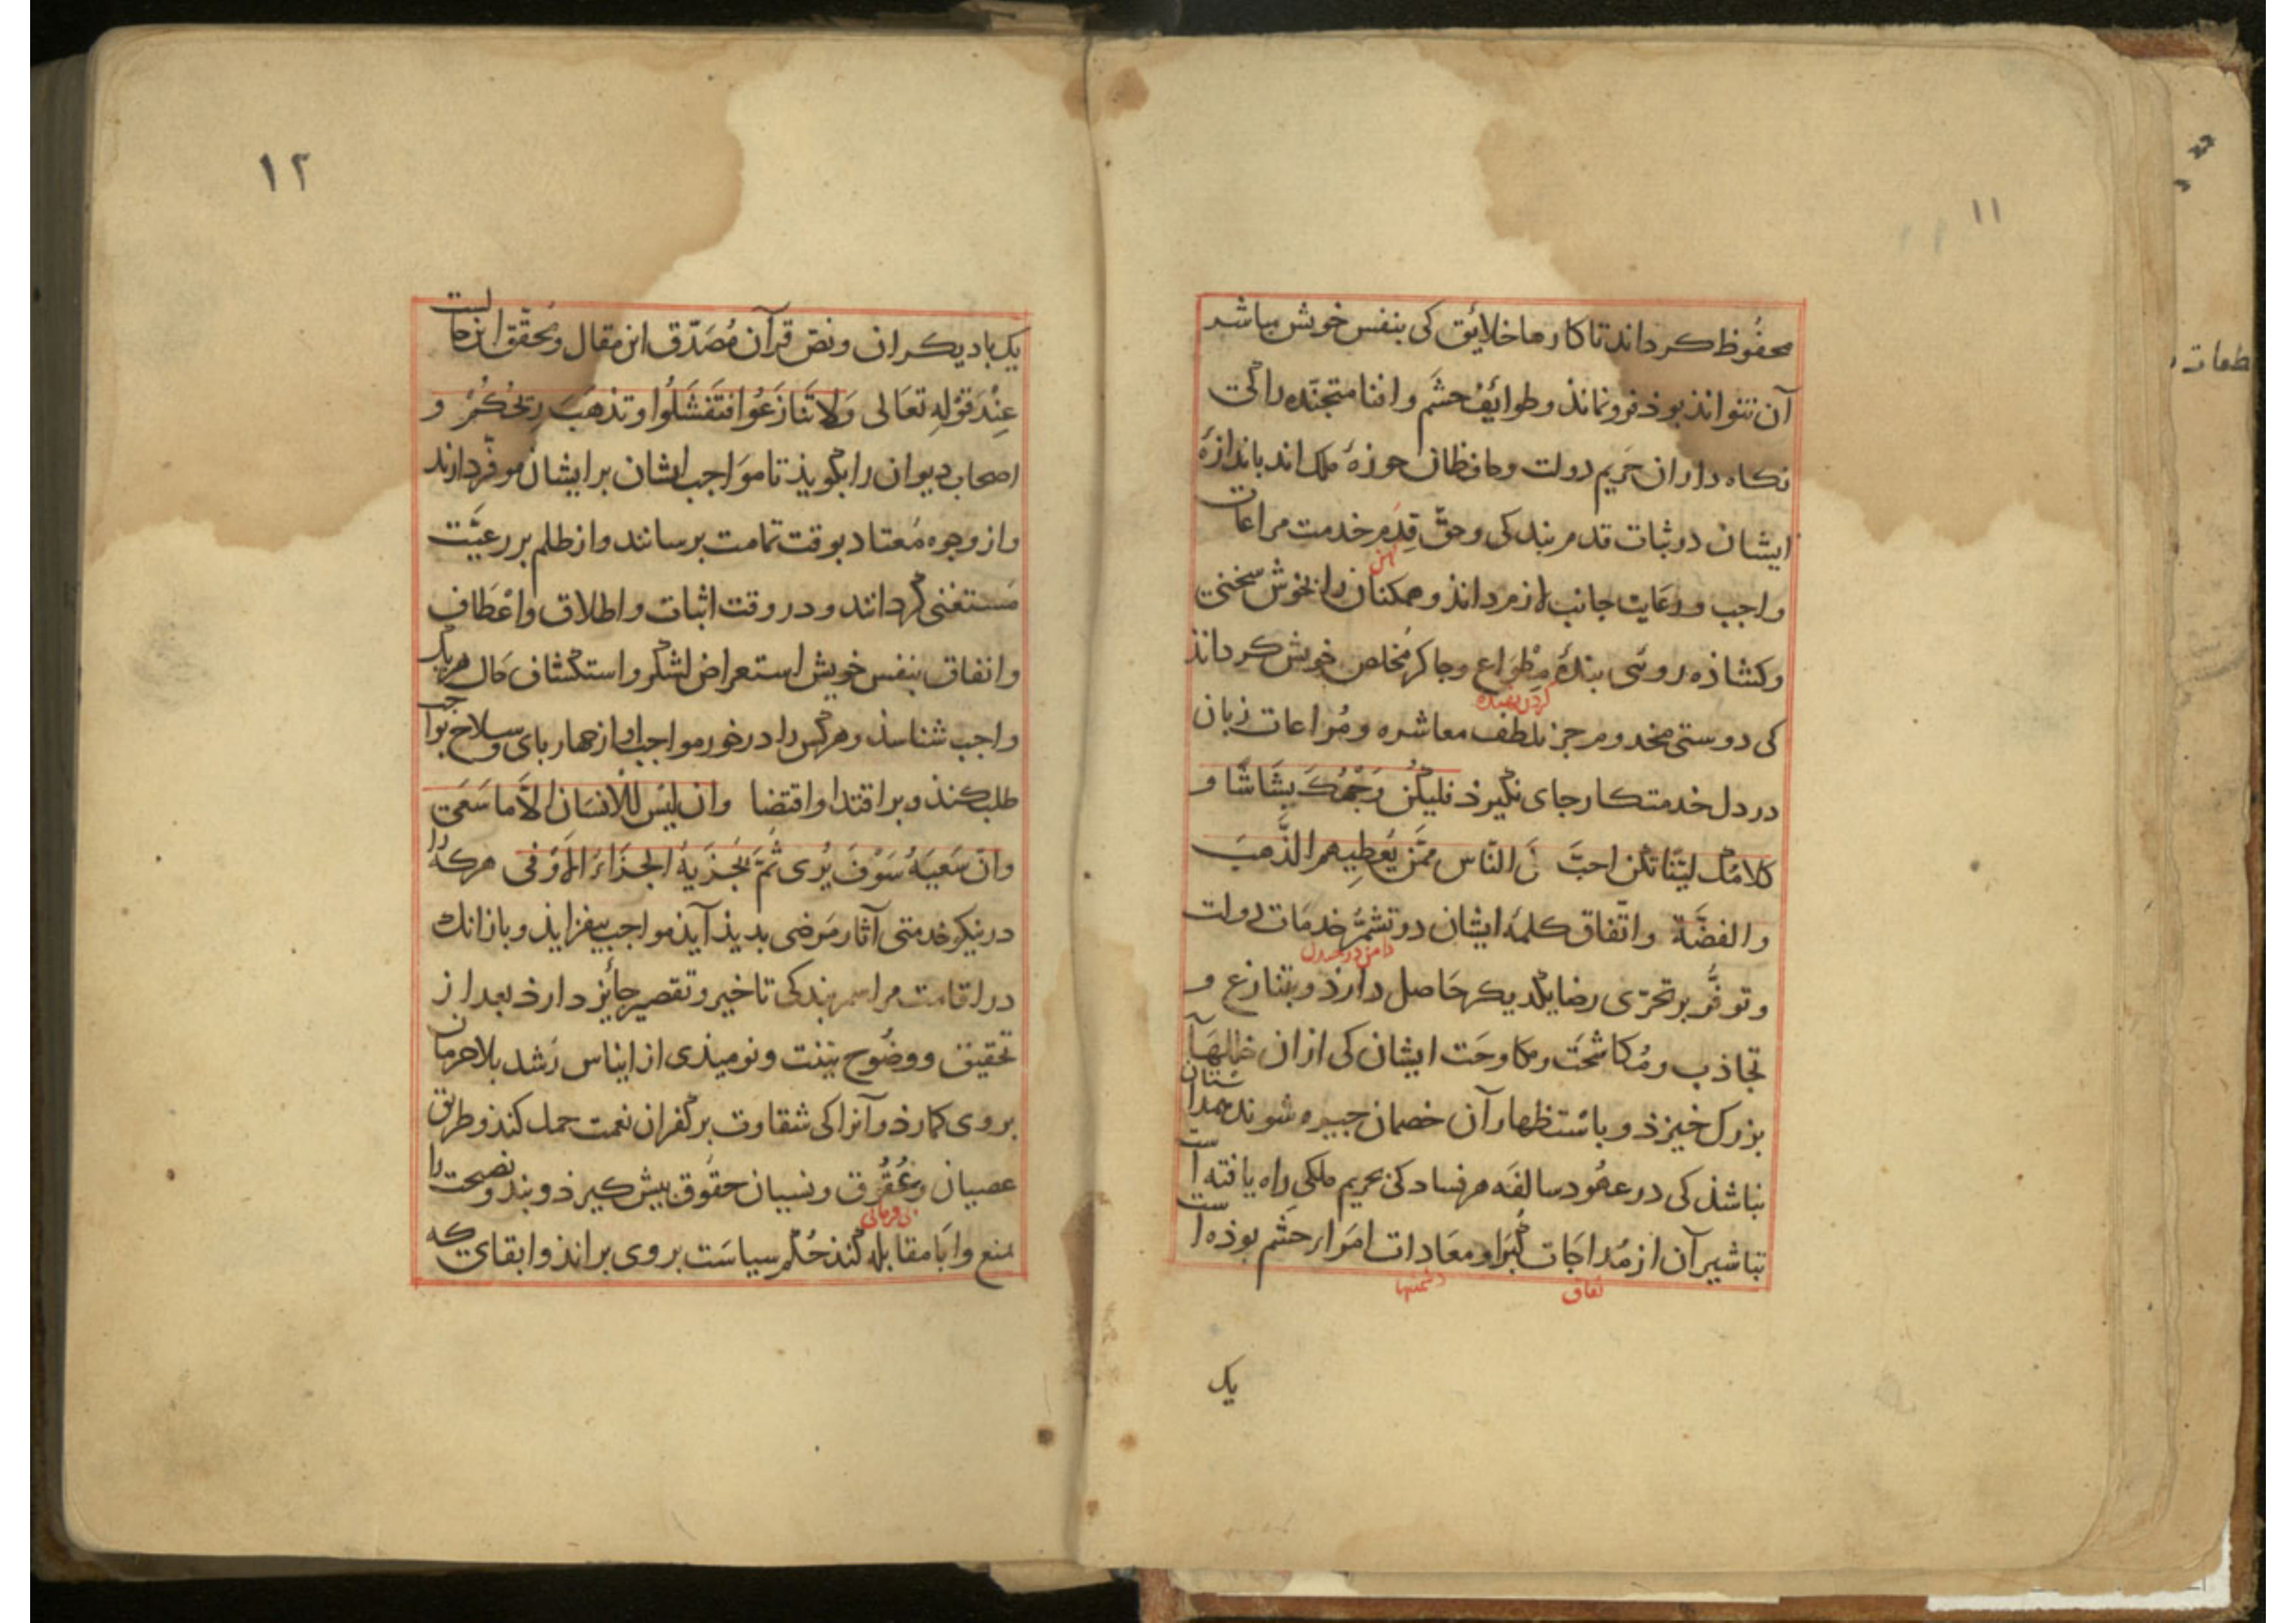 ۱۱
محفُوظ کرداند تا کارها خلایٔق کی بنفس خویش مباشر
آن نتوانذ بوذ فرو نماند و طوایٔف حشَم وافنا متجنّده را کی
نکاه داران حَریم دولت و حافظان حوزهٔ ملک اند باندازهٔ
ایشان در ثبات قدم بندکی و حقّ قِدَم خدمت مراعات
کهن
واجب و رعَایت جانب لازم دانذ و همکنان را بخوش سخنی
و کشاذه روئی بندهٔ مِطْوَاع و جاکر مُخلص خویش کرداند
کردن نهنده
کی دوستی مخدوم جز بلطف معاشره و مُراعات زبان
در دل خدمتکار جای نکیرذ فلیکُن وَجْهُکَ بشَاشًا و
کلامُک لیّنًا تکن احبَّ الی النّاس ممَّن یُعطِیهم الذَّهبَ
والفضَّة و اتّفاق کلمهٔ ایشان در تشمُّر خدمَات دولت
دامن در
و توفُّر بر تحرّی رضا یکدیکر حَاصل دارذ و بتنازع و
تجاذب و مُکاشحَت و مکاوحَت ایشان کی ازان خللهَآ
بزرک خیزذ و باسْتظهار آن خصمان جیره شوند همداستان
نباشذ کی در عهُود سالفَه هر فساد کی بحریم ملکی راه یافته است
تباشیر آن از مُداجَات کُبَرا و معَادات امَراء حشم بوذه است
نفاق
دشمنیها
یک
۱۲
یک با دیکران و نصّ قرآن مُصَدّق این مقال و مُحقّق این حالست
عِنْدَ قوْلِهِ تعَالی وَلَا تَنَازَعُوا فَتَفشَلُوا وَتذهَبَ رِیحُکُمْ و
اصحاب دیوان را بکویذ تا موَاجب ایشان بر ایشان موفّر دارند
و از وجوه مُعتاد بوقت تمامت برسانند و از ظلم بر رعیَّت
مستغنی کردانند و در وقت اثبات و اطلاق و اعْطَاف
و انفاق بنفس خویش استعراض لشکر و استکشاف حَال هر یک
واجب شناسذ و هر کس را در خور مواجب او از جهار بای و سلاح بواجب
طلب کند و بر اقتدا و اقتضا وان لیْسَ للْانسَان الَّا ما سَعَی
وانّ سَعیَهُ سَوْفَ یُری ثُمَّ یُجْزَیهُ الجزَاءَ الْاَوْفی هر که را
در نیکو خدمتی آثار مَرضی بدیذ آیذ مواجب بیفزایذ و باز انک
در اقامت مراسم بندکی تاخیر و تقصیر جایٔز دارذ بعد از
تحقیق و وضُوح بیّنت و نومیذی از ایناس رُشد بلا حرمان
بر وی کمارذ و آنرا کی شقاوت بر کُفران نعمت حمل کند و طریق
عصیان و عُقُوق و نسیان حقُوق بیش کیرذ و بند و نصیحت را
بی فرمانی
بمنع و اَبَا مقابله کُند حُکم سیاسَت بر وی براند و ابقای که